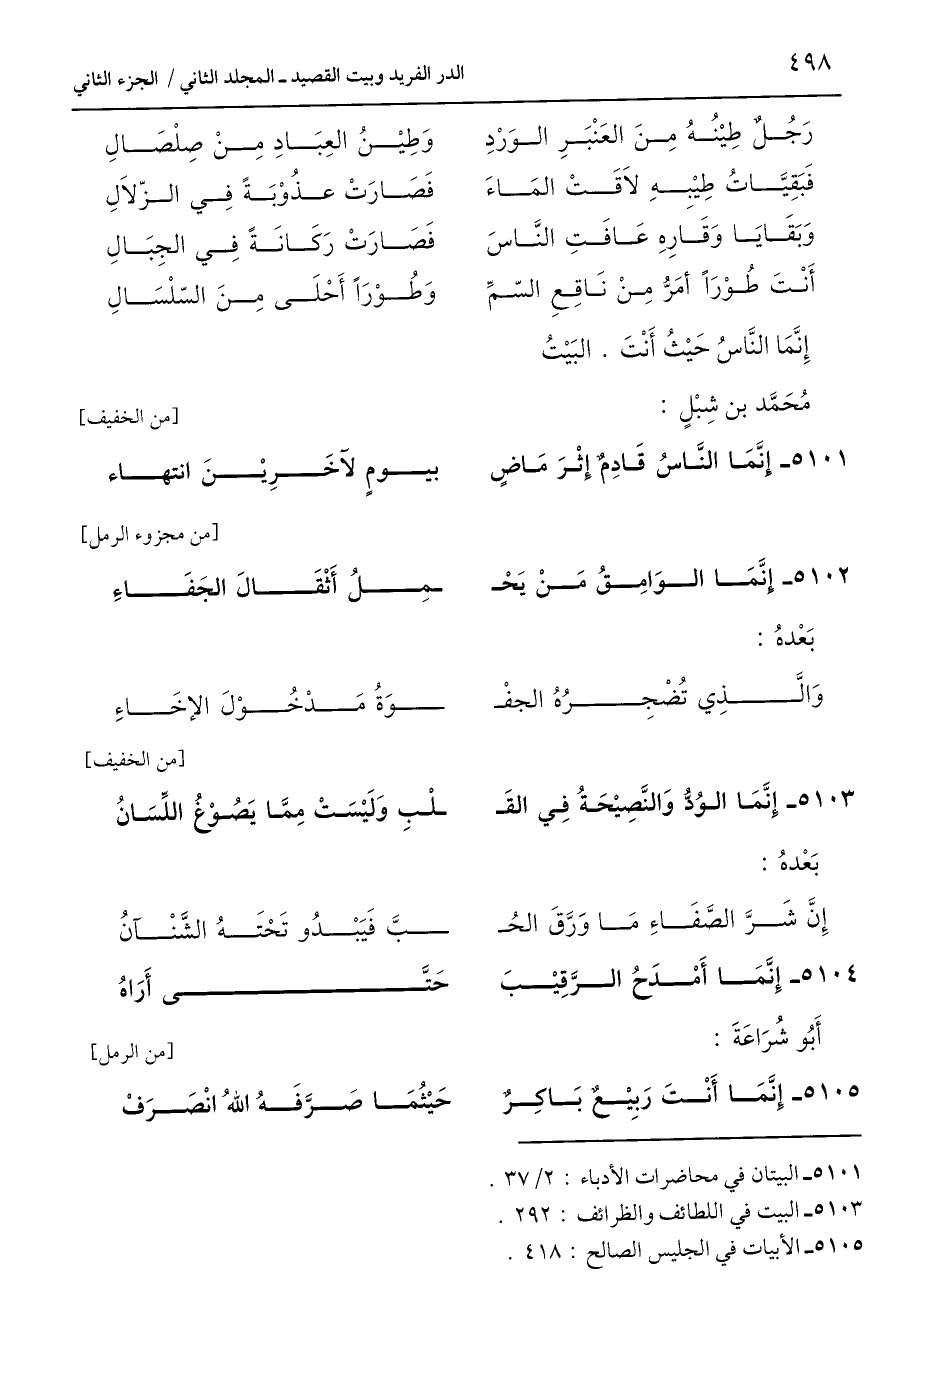 ٤٩٨ الدر الفريد وبيت القصيد ـ المجلد الثاني / الجزء الثاني
رَجُلٌ طِيْنُهُ مِنَ العَنْبَرِ الوَرْدِ وَطِيْنُ العِبَادِ مِنْ صِلْصَالِ
فَبَقِيَّاتُ طِيْبِهِ لاَقَتْ المَاءَ فَصَارَتْ عذُوْبَةً فِي الزّلاَلِ
وَبَقَايَا وَقَارِهِ عَافَتِ النَّاسَ فَصَارَتْ رَكَانَةً فِي الجِبَالِ
أَنْتَ طُوْرَاً أمَرُّ مِنْ نَاقِعِ السّمِّ وَطُوْرَاً أَحْلَى مِنَ السّلْسَالِ
إِنَّمَا النَّاسُ حَيْثُ أَنْتَ . البَيْتُ
مُحَمَّد بن شِبْلٍ :
[من الخفيف]
٥١٠١ـ إِنَّمَا النَّاسُ قَادِمٌ إِثْرَ مَاضٍ بيومٍ لآخَرِيْنَ انتهاء
[من مجزوء الرمل]
٥١٠٢ـ إِنَّمَا الوَامِقُ مَنْ يَحْـ ـمِلُ أَثْقَالَ الجَفَاءِ
بَعْدهُ :
وَالَّذِي تُضْجِرُهُ الجفْـ ـوَةُ مَدْخُوْلَ الإخَاءِ
[من الخفيف]
٥١٠٣ـ إِنَّمَا الوُدُّ وَالنَّصِيْحَةُ فِي القَـ ـلْبِ وَلَيْسَتْ مِمَّا يَصُوْغُ اللِّسَانُ
بَعْدهُ :
إِنَّ شَرَّ الصَّفَاءِ مَا وَرَّقَ الحُـ ـبَّ فَيَبْدُو تَحْتَهُ الشَّنْآنُ
٥١٠٤ـ إِنَّمَا أَمْدَحُ الرَّقِيْبَ حَتَّى أَرَاهُ
أَبُو شُرَاعَةَ :
[من الرمل]
٥١٠٥ـ إِنَّمَا أَنْتَ رَبِيْعٌ بَاكِرٌ حَيْثُمَا صَرَّفَهُ اللهُ انْصَرَفْ
٥١٠١ـ البيتان في محاضرات الأدباء : ٢/ ٣٧ .
٥١٠٣ـ البيت في اللطائف والظرائف : ٢٩٢ .
٥١٠٥ـ الأبيات في الجليس الصالح : ٤١٨ .